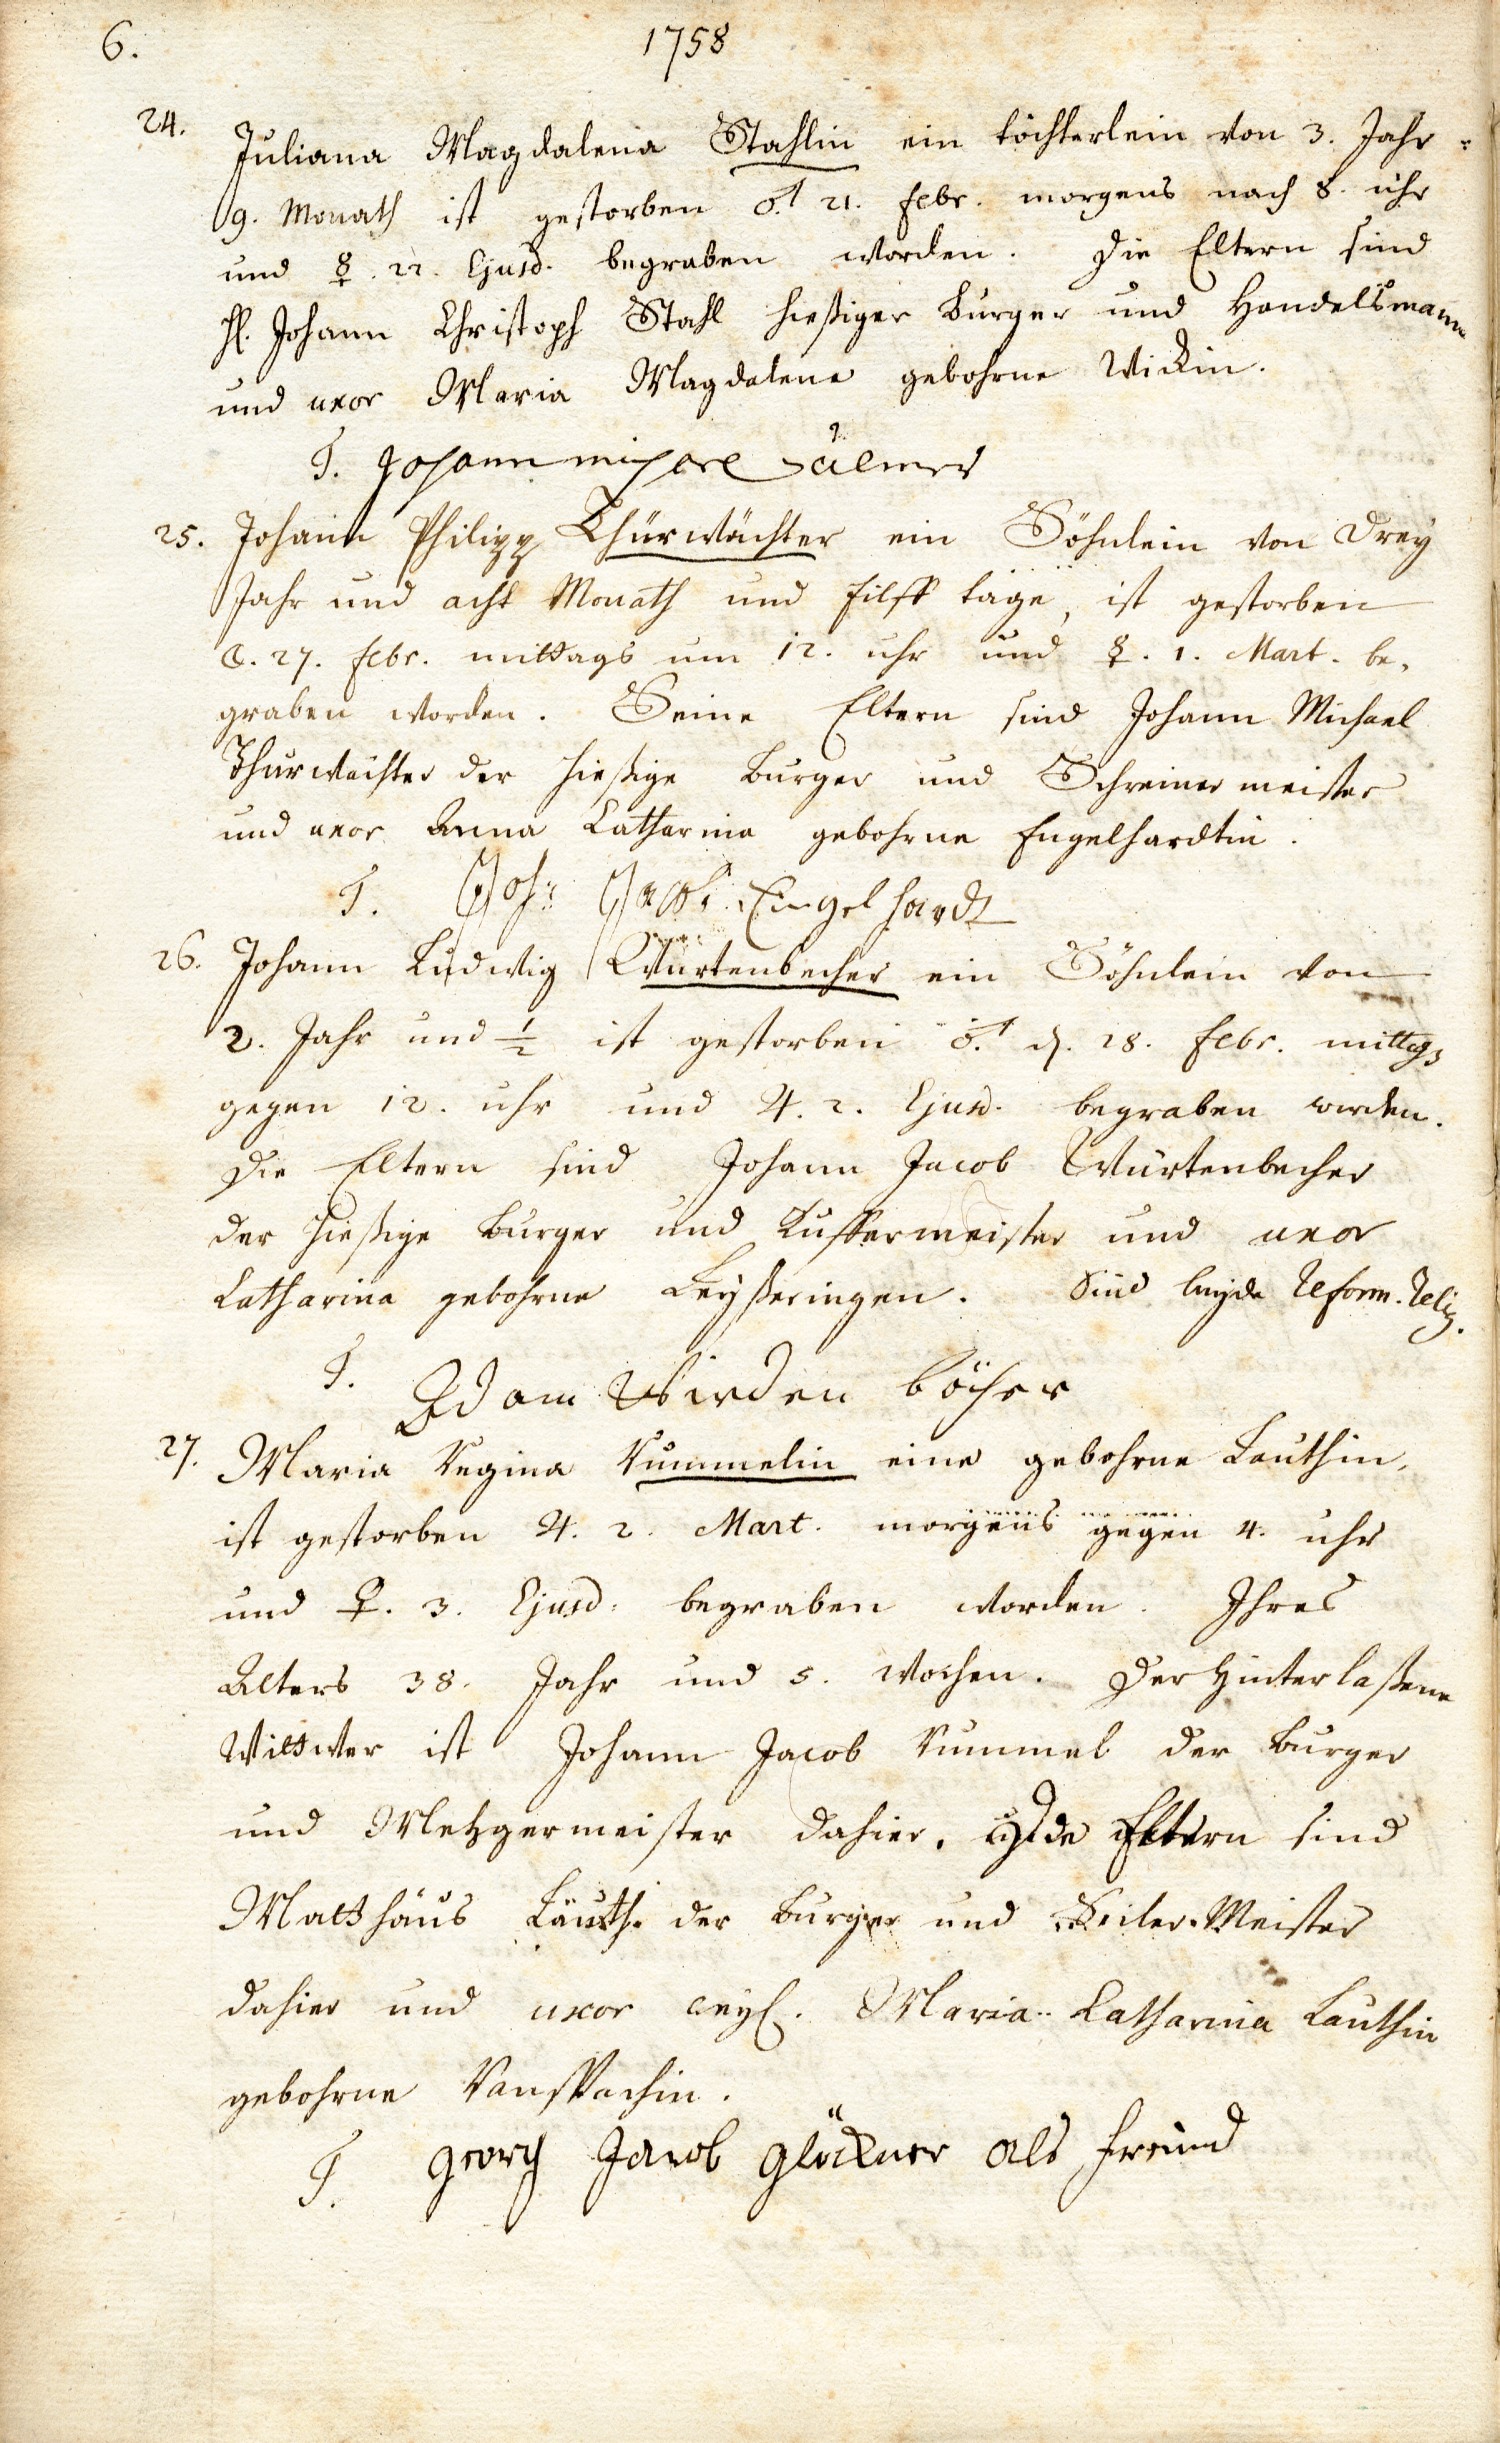 6.
1758
24. Juliana Magdalena Stahlin ein töchterlein von 3. Jahr
9. Monath ist gestorben ♂ 21. febr. morgens nach 8. uhr
und ☿. 22. Ejusd. begraben worden. Die Eltern sind
H. Johann Christoph Stahl hießiger Burger und Handelsmann
und uxor Maria Magdalena gebohrne Wickin.
T. Johann michael
25. Johann Philipp Thürwächter ein Söhnlein von Drey
Jahr und acht Monath und tage, ist gestorben
☾. 27. febr. mittags um 12. uhr und ☿. 1. Mart. be,
graben worden. Seine Eltern sind Johann Michael
Thurwächter der hießige Burger und Schreiner meister
und uxor Anna Catharina gebohrne Engelhardtin.
T. Joh: Engelhardt
26. Johann Ludwig Würtenbecher ein Söhnlein von
2. Jahr und ½ ist gestorben ♂ d. 28. febr. mittags
gegen 12. uhr und ♃. 2. Ejusd. begraben worden.
Die Eltern sind Johann Jacob Würtenbecher
der hießige Burger und Kuffermeister und uxor
Catharina gebohrne Leyßeringen. Sind beyde Reform. Relig.
T. Adam Wirden böcher
27. Maria Regina Rummelin eine gebohrne Lauthin,
ist gestorben ♃. 2. Mart. morgens gegen 4. uhr
und ♀. 3. Ejusd. begraben worden. Ihres
Alters 38. Jahr und 5. Wochen. Der Hinterlaßene
Wittwer ist Johann Jacob Rummel der Burger
und Metzgermeister dahier. Die Eltern sind
Matthäus Lauth. der Burger und Seiler-Meister
dahier und uxor weyl. Maria Catharina Lauthin
gebohrne Ranspachin.
T. Georg Jacob Glöckner als freund